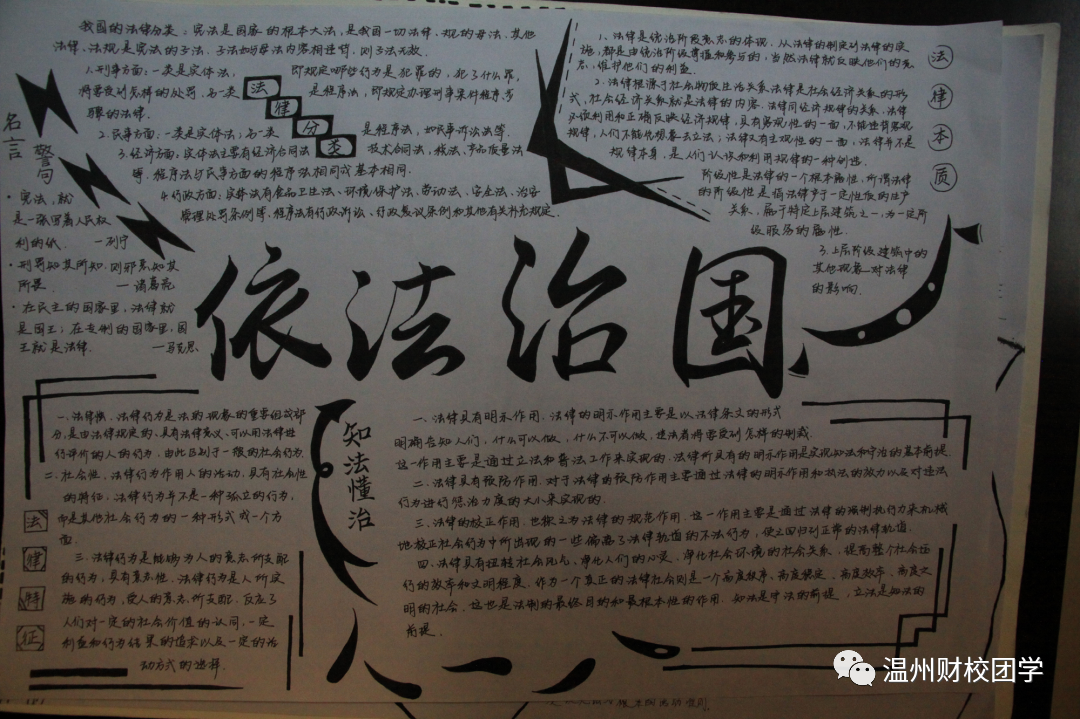 我国的法律分类：宪法是国家的根本大法，是我国一切法律、规的母法，其他
法律、法规是宪法的子法，子法如与母法内容相违背，则子法无效。
1.刑事方面：一类是实体法，即规定哪些行为是犯罪的，犯了什么罪，
将要受到怎样的处罚，另一类是程序法，即规定办理刑事案件程序步
骤的法律。
2.民事方面：一类是实体法；另一类是程序法，如民事诉讼法等。
3.经济方面：实体法主要有经济合同法、技术合同法，税法，产品质量法
等，程序法与民事方面的程序法相同或基本相同。
4.行政方面：实体法有食品卫生法、环境保护法、劳动法、安全法、治安
管理处罚条例等，程序法有行政诉讼、行政复议条例和其他有关补充规定。
法
律
分
类
名言
警句
·宪法，就
是一张写着人民权
利的纸。 —列宁
·刑罚知其所加，则邪恶知其
所畏。 —诸葛亮
·在民主的国家里，法律就
是国王；在专制的国家里，国
王就是法律。 —马克思
1、法律是统治阶段意志的体现，从法律的制定到法律的实
施，都是由统治阶级
志，维护他们的利益。
2.法律根源于社会物质生活关系法律是社会经济关系的形
式，社会经济关系就是法律的内容。法律同经济规律的关系，法律
必须利用和正确反映经济规律，具有客观性的一面，不能违背客观
规律，人们不能凭想象去立法；法律又有主观性的一面，法律并不是
规律本身，是人们认识和利用规律的一种创造。
阶级性是法律的一个根本属性，所谓法律
的阶级性是指法律产于一定性质的生产
关系，属于特定上层建筑之一，为一定阶
级服务的属性。
3.上层阶级建筑中的
其他现象对法律
的影响。
法
律
本
质
依法治国
一、法律性，法律行为是法的现象的重要组成部
分，是由法律规定的、具有法律意义、可以用法律进
行评价的人的行为，由此区别于一般的社会行为。
二、社会性，法律行为作用人的活动，具有社会性
的特征；法律行为并不是一种孤立的行为，
而是其他社会行为的一种形式或一个方
面。
三、法律行为是能够为人的意志所支配
的行为，具有意志性。法律行为是人所实
施的行为，受人的意志所支配，反应了
人们对一定的社会价值的认同，一定
利益和行为结果的追求以及一定的活
动方式的选择。
法
律
特
征
知法懂治
一、法律具有明示作用。法律的明示作用主要是以法律条文的形式
明确告知人们，什么可以做，什么不可以做，违法者将要受到怎样的制裁。
这一作用主要是通过立法和普法工作来实现的。法律所具有的明示作用是实现知法和守法的基本前提。
二、法律具有预防作用。对于法律的预防作用主要通过法律的明示作用和执法的效力以及对违法
行为进行惩治力度的大小来实现的。
三、法律的校正作用，也称之为法律的规范作用。这一作用主要是通过法律的强制执行力来机械
地校正社会行为中所出现的一些偏离了法律轨道的不法行为，使之回归到正常的法律轨道。
四、法律具有扭转社会风气、净化人们的心灵、净化社会环境的社会关系，提高整个社会运
行的效率和文明程度。作为一个真正的法律社会则是一个高度秩序、高度稳定、高度效率、高度文
明的社会，这也是法制的最终目的和最根本性的作用。知法是守法的前提，立法是知法的
前提。
温州财校团学